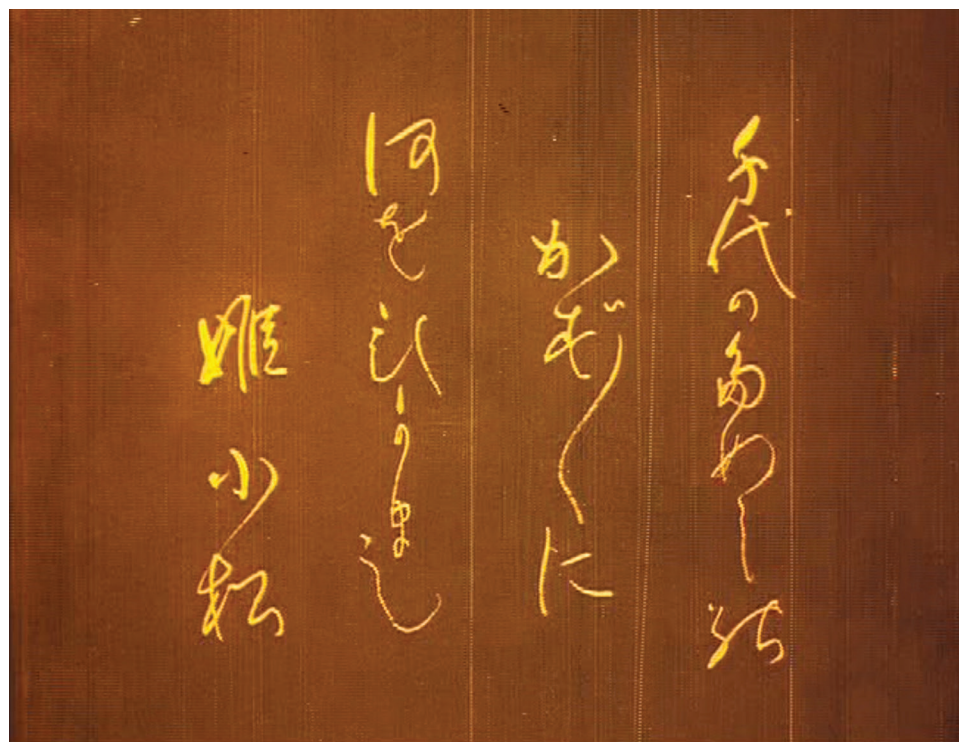 千代のためし能
かず〱に
何をひかまし
姫小松